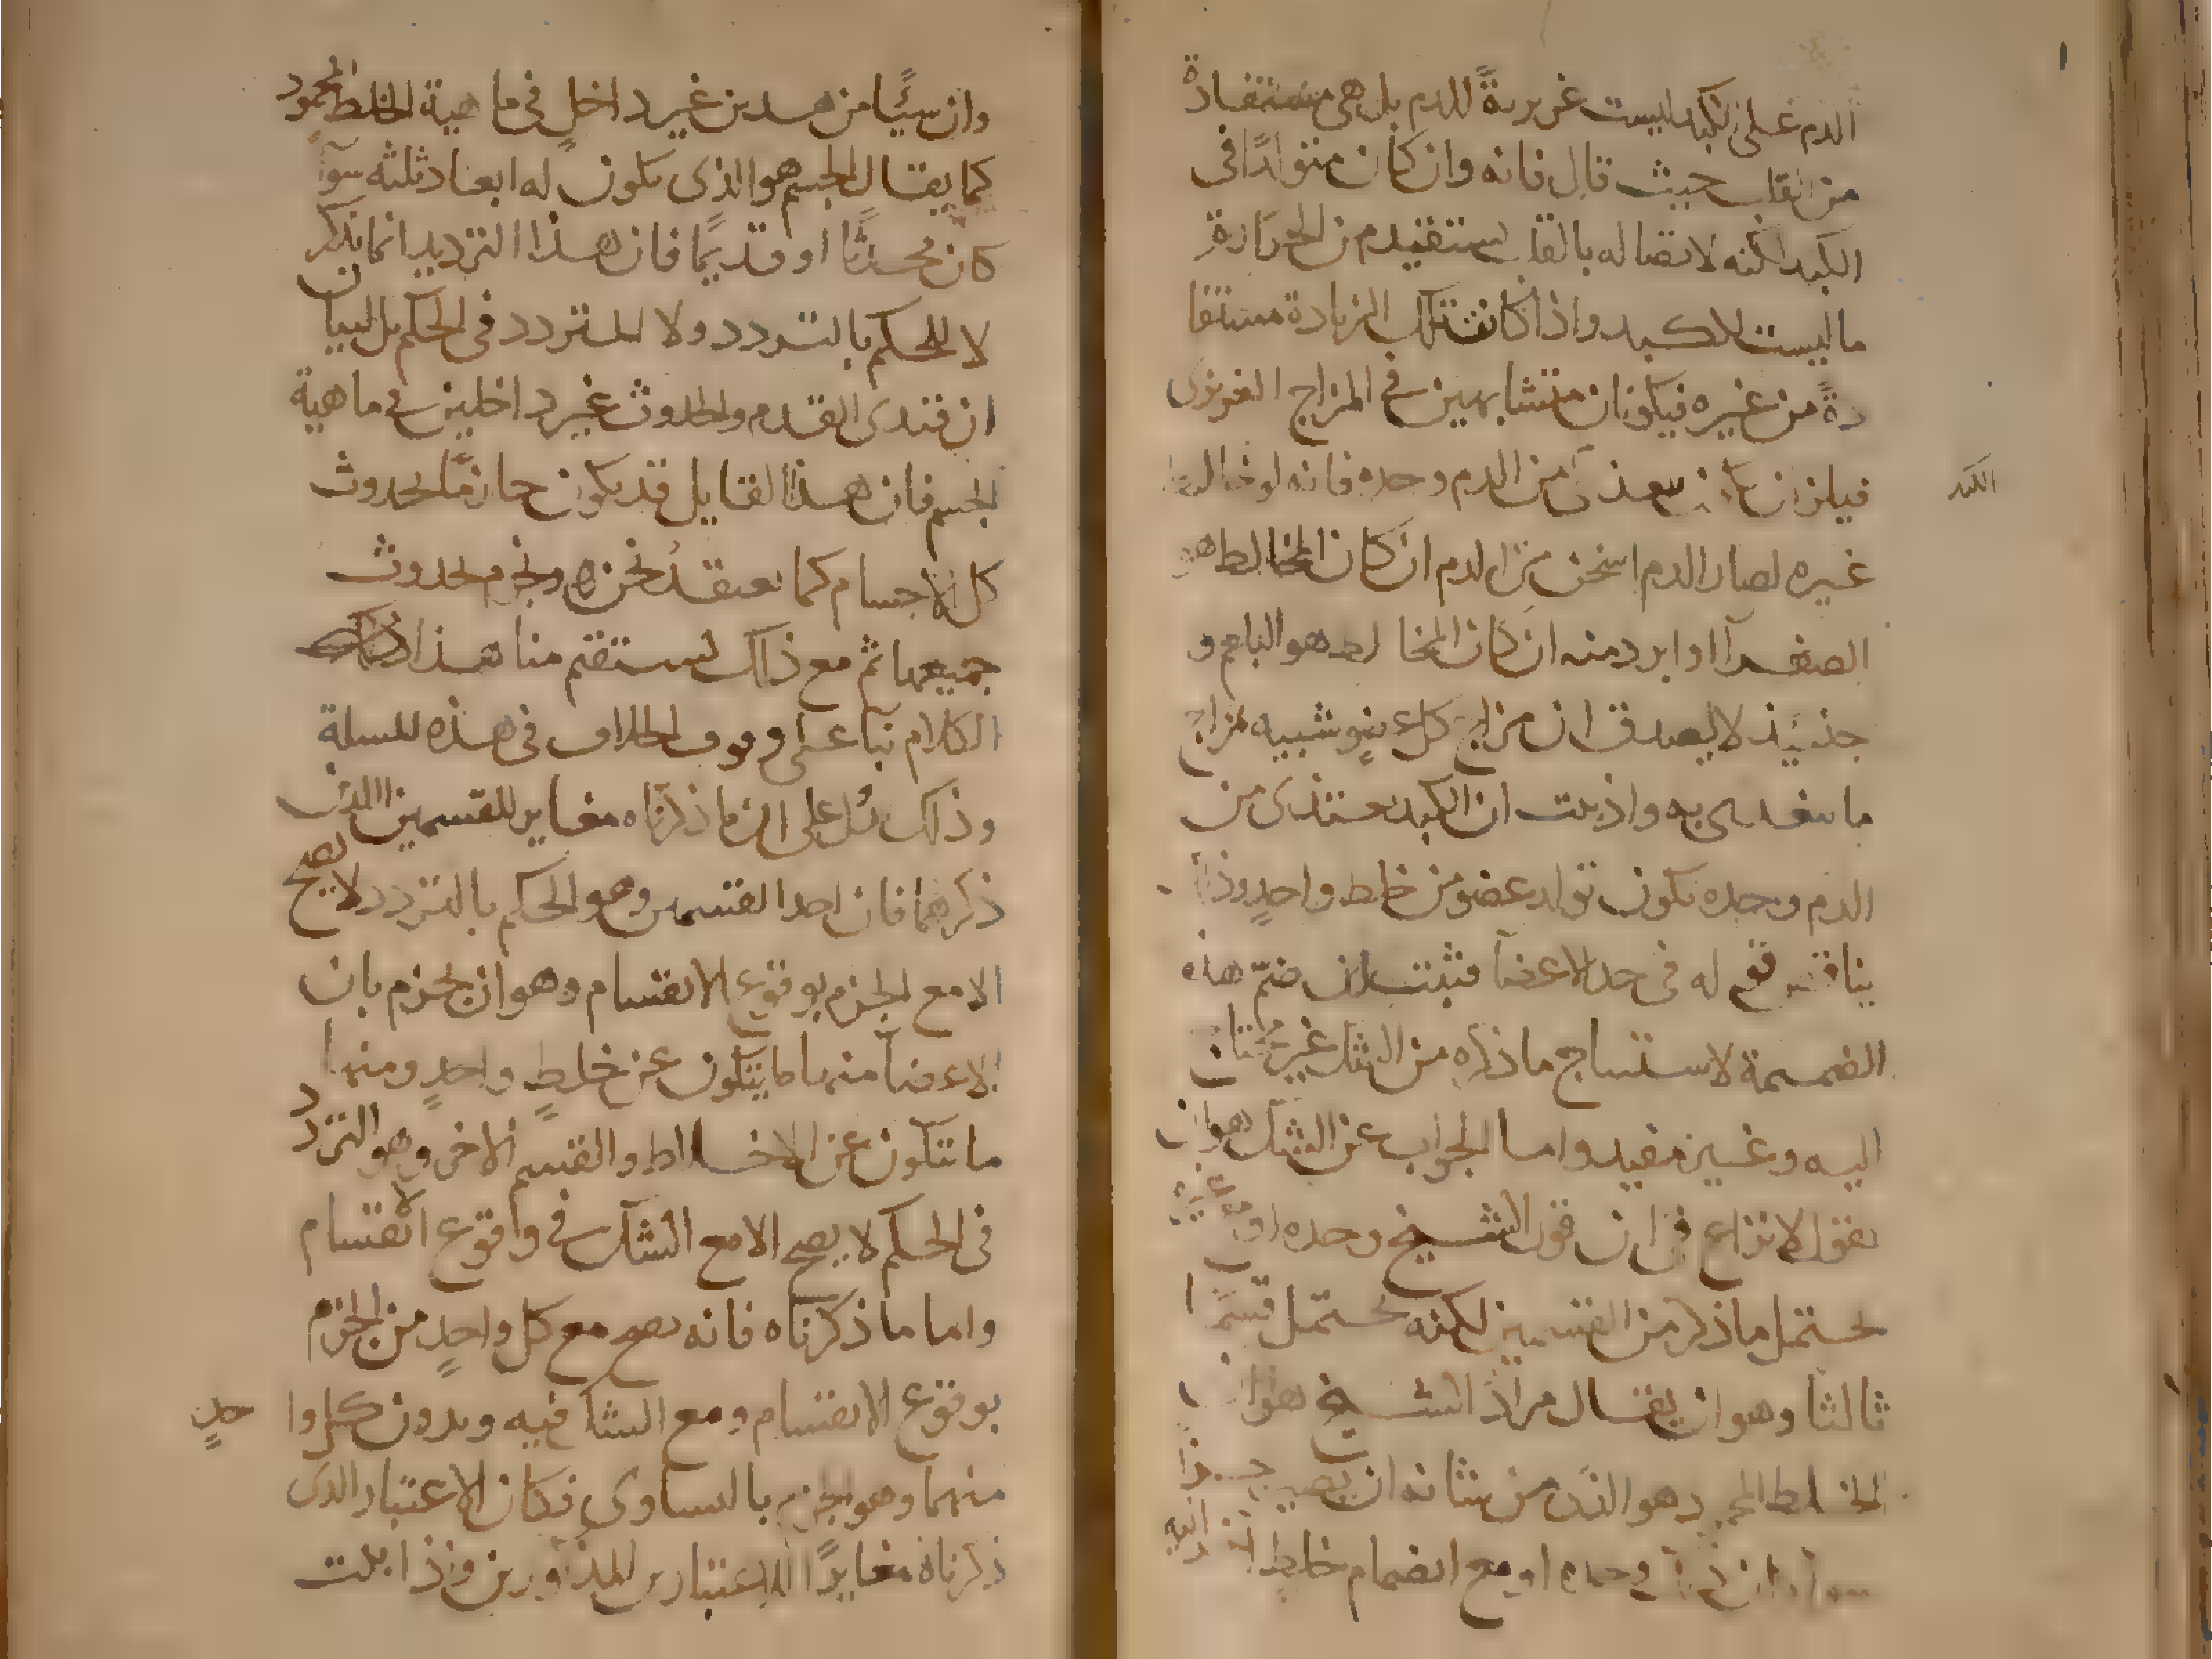 الدم على الكبد ليست غريزيةً للدم بل هي مستفادة
من القلب حيث قال فانه وان كان متولدًا في
الكبد لكنه لاتصاله بالقلب يستفيد من الحرارة
ما ليست للكبد واذا كانت تلك الزيادة مستفا
دةً من غيره فيكونان متشابهين في المزاج الغريزى
فيلزم ان من الدم وحده فانه لو خالط
الكبد
غيره لصار الدم اسخن من الدم ان كان المخالط هو
الصفرآ او ابرد منه ان كان المخالط هو البلغم و
حينئيذ لا يصدق ان مزاج كل عضوٍ شبيه بمزاج
ما يتغدى به واذ ثبت ان الكبد يغتذى من
الدم وحده يكون تولد عضو من خلط واحدٍ وذلك
يناقض قوله في حد الاعضآ فثبت ان ضمّ هذه
الضميمة لاستنتاج ما ذكره من الشك غير محتاج
اليه وغير مفيد واما الجواب عن الشك هو ان
نقول لا نزاع في ان قول الشيخ وحده او مع غيره
يحتمل ما ذكر من القسمين لكنه يحتمل قسمًا
ثالثا وهو ان يقال مراد الشيخ هو ان
الخلط المحمود هو الذى من شانه ان يصير جزءا
سوآ كان وحده او مع انضمام خلطٍ آخر اليه
وان شيًا من هذين غير داخلٍ في ماهية الخلط المحمود
كما يقال الجسم هو الذى يكون له ابعاد ثلثه سوآ
كان محدثًا او قديمًا فان هذا الترديد انما يذكر
لا للحكم بالتردد ولا للتردد في الحكم بل لبيان
ان قيدى القدم والحدوث غير داخلين في ماهية
الجسم فان هذا القايل قد يكون جازمًا بحدوث
كل الاجسام كما نعتقد نحن ونجزم بحدوث
جميعها ثم مع ذلك يستقيم منا هذا
الكلام بنآ على وقوع الخلاف في هذه المسلة
وذلك يدل على ان ما ذكرناه مغاير للقسمين الذين
ذكرهما فان احد القسمين وهو الحكم بالتردد لا يصح
الا مع الجزم بوقوع الانقسام وهو ان يجزم بان
الاعضآ منها ما يتكون عن خلطٍ واحدٍ ومنها
ما يتكون عن الاخلاط والقسم الاخر وهو التردد
في الحكم لا يصح الا مع الشك في وقوع الانقسام
واما ما ذكرناه فانه يصح مع كل واحدٍ من الجزم
بوقوع الانقسام ومع الشك فيه وبدون كل وا حدٍ
منهما وهو الجزم بالتساوى فكان الاعتبار الذى
ذكرناه مغايرًا للاعتبارين المذكورين واذا ثبت